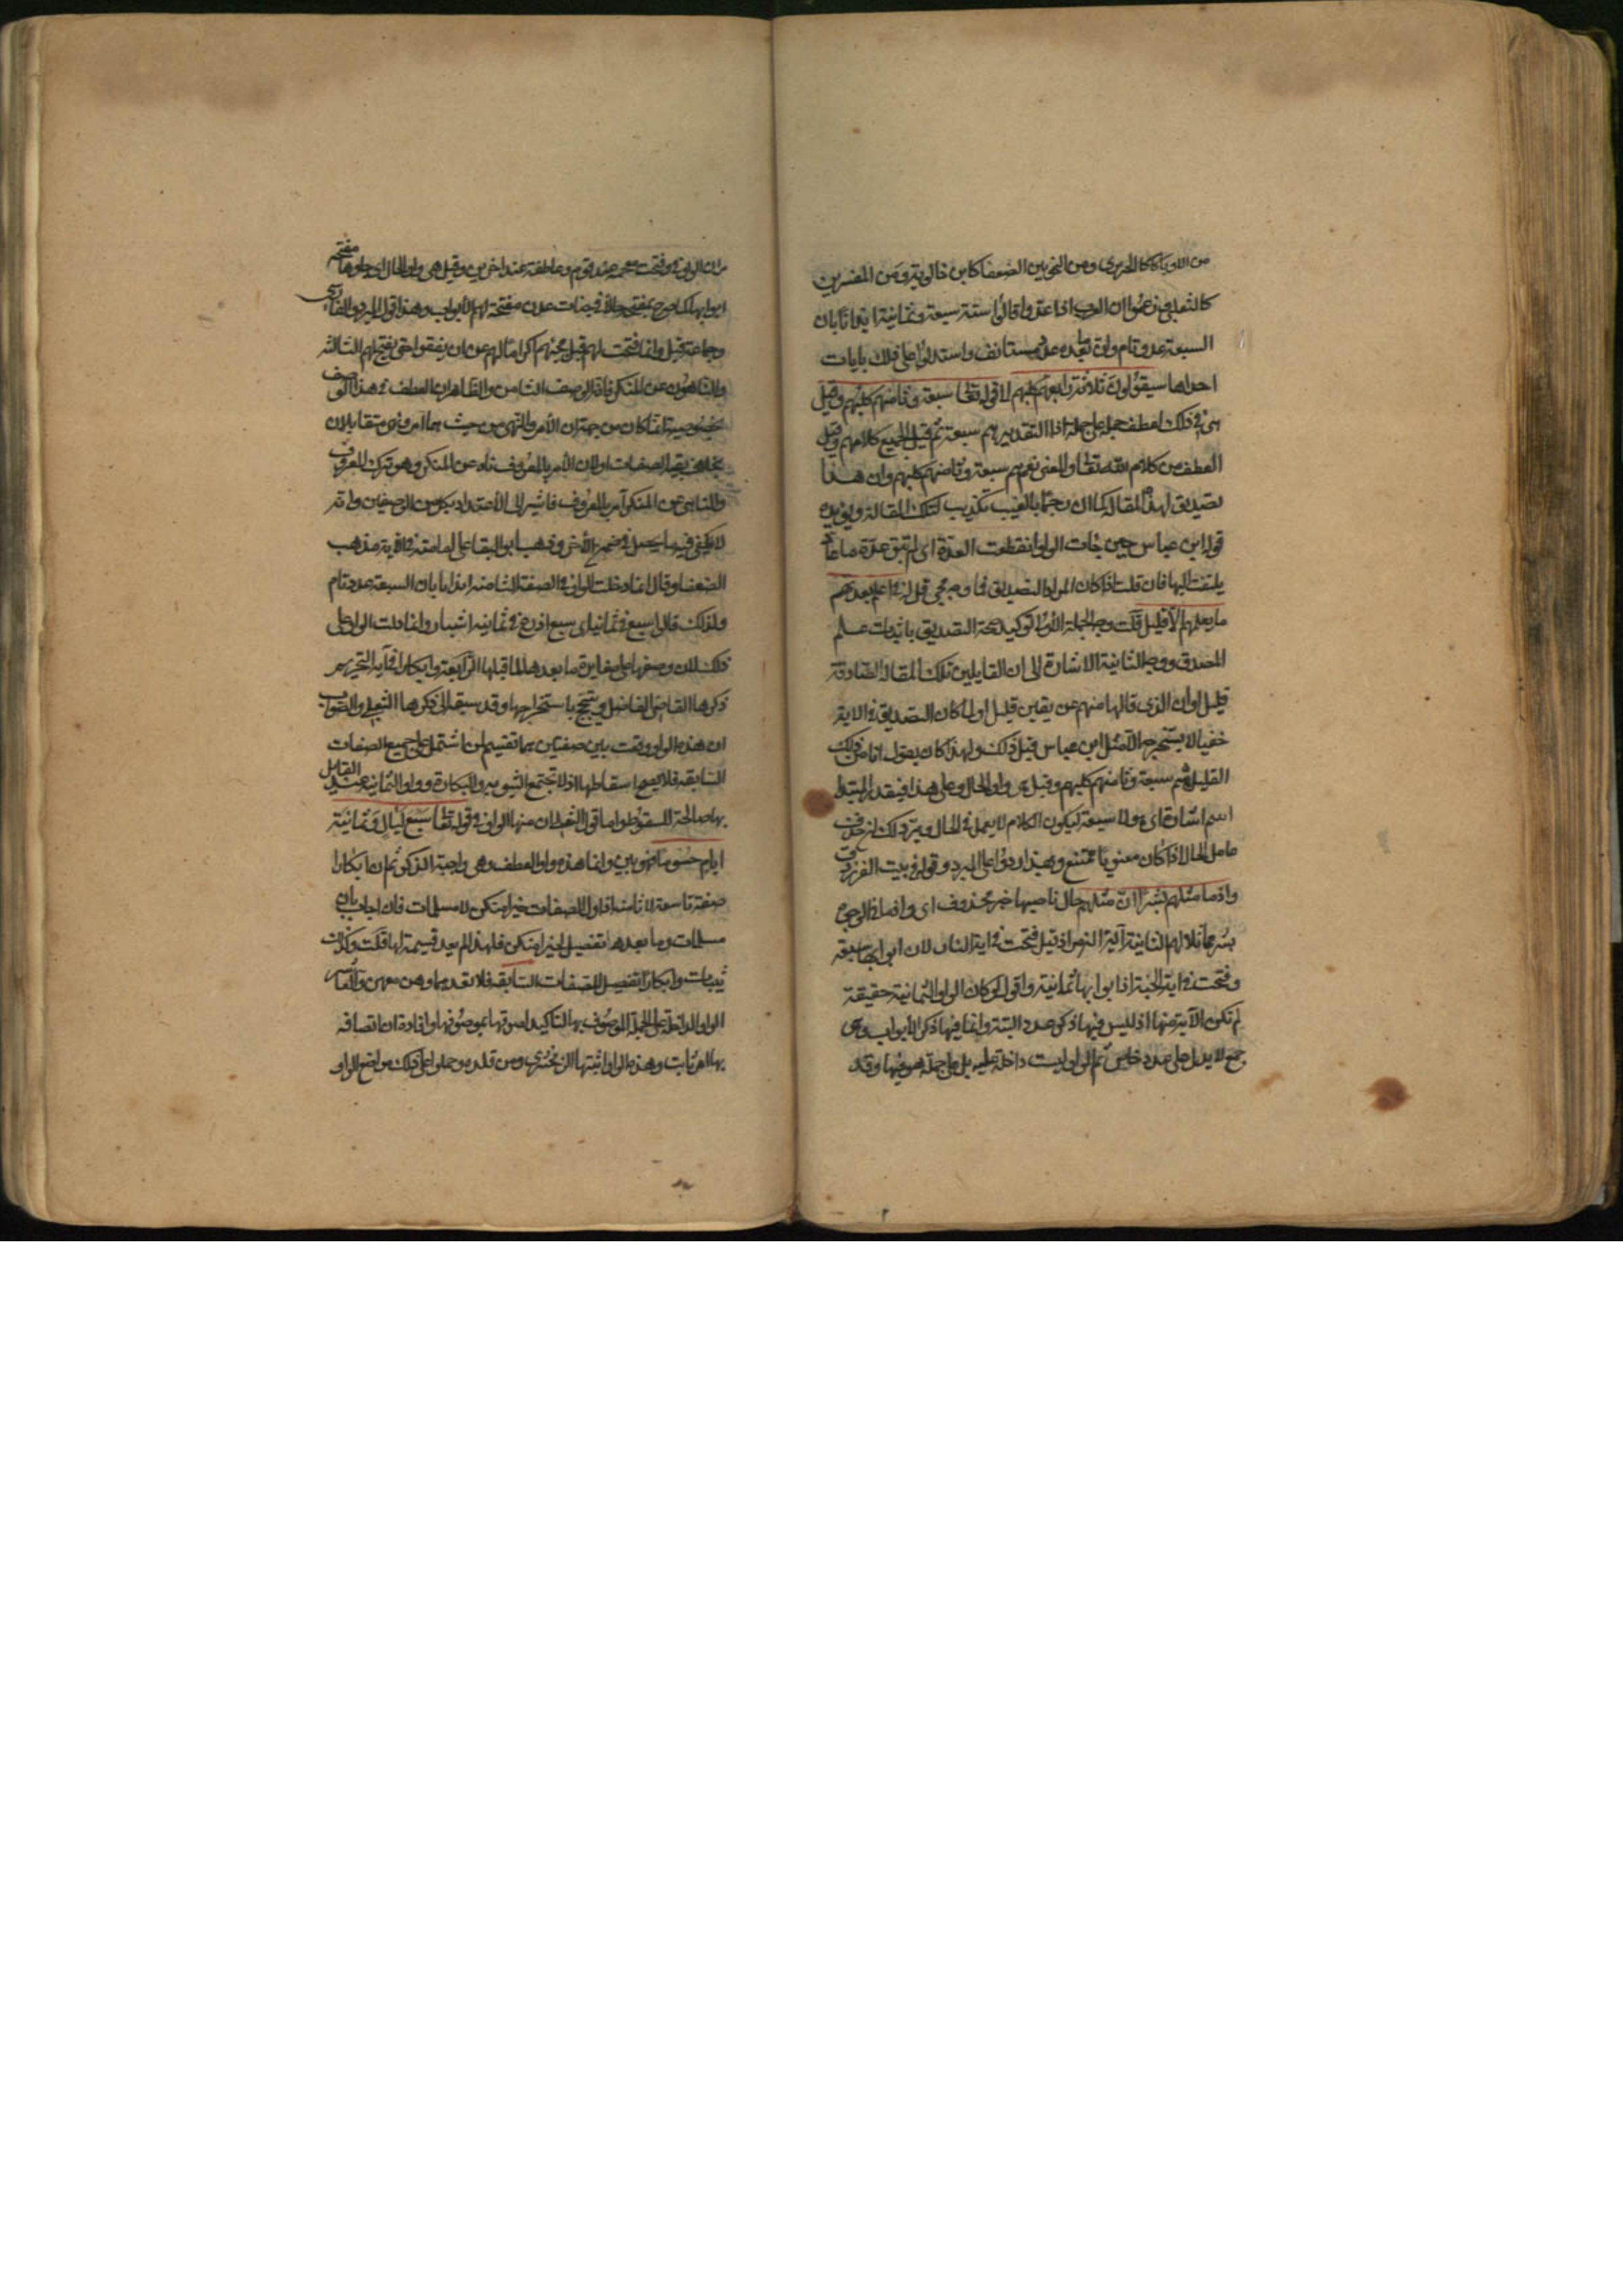 من الادباء كالحريري ومن النحويين الضعفا كابن خالويه ومن المفسرين
كالثعلبي زعموا ان العرب اذا عدوا قالوا ستة سبعة وثمانية ايذانا بان
السبعة عدد تام وان ما بعده عدد مستانف واستدلوا على ذلك بايات
احداها سيقولون ثلاثة رابعهم كلبهم الى قوله تعالى سبعة وثامنهم كلبهم وقيل
هي في ذلك لعطف جملة على جملة اذ التقدير هم سبعة ثم قيل الجميع كلامهم وقيل
العطف من كلام الله تعالى والمعنى نعم هم سبعة وثامنهم كلبهم وان هذا
تصديق لهذه المقالة كما ان رجما بالغيب تكذيب لتلك المقالة ويؤيده
قول ابن عباس حين جات الواو انقطعت العدة اى لم تبق عدة عاد
يلتفت اليها فان قلت اذا كان المراد التصديق فما وجه مجي قل ربي اعلم بعدتهم
ما يعلمهم الا قليل قلت وجه الجملة الاولى توكيد صحة التصديق باثبات علم
المصدق ووجه الثانية الاشارة الى ان القايلين تلك المقالة الصادقة
قليل او ان الذي قالها منهم عن يقين قليل او لما كان التصديق في الاية
خفيا لا يستخرجه الا مثل ابن عباس قيل ذلك ولهذا كان يقول انا من ذلك
القليل هم سبعة وثامنهم كلبهم وقيل هى واو الحال وعلى هذا فيقدر المبتدا
اسم اشارة اى هولا سبعة ليكون الكلام ما يعمل في الحال ويرد ذلك ان حذف
عامل الحال اذا كان معنويا ممتنع وبهذا ردوا على المبرد قوله في بيت الفرزدق
واذ ما مثلهم بشر ان مثلهم حال ناصبها خبر محذوف اى واذ ما في الوجود
بشر مماثلا لهم الثانية آية الزمر اذ قيل فتحت في اية النار لان ابوابها سبعة
وفتحت في اية الجنة اذ ابوابها ثمانية واقول لو كان لواو الثمانية حقيقة
لم تكن الآية منها اذ ليس فيها ذكر عدد البتة وانما فيها ذكر الابواب وهى
جمع لا يدل على عدد خاص ثم الواو ليست داخلة عليه بل على جملة هو فيها وقد
مر ان الواو في وفتحت مقحمة عند قوم وعاطفة عند اخرين وقيل هى واو الحال اى جاوها مفتحة
ابوابها كما صرح بمفتحة حالا في جنات عدن مفتحة لهم الابواب وهذا قول المبرد والفارسى
وجماعة قيل وانما فتحت لهم قبل مجيئهم اكراما لهم عن ان يقفوا حتى تفتح لهم الثالثة
والناهون عن المنكر فانه الوصف الثامن والظاهر ان العطف في هذا الوصف
بخصوصه انما كان من جهة ان الامر والنهى من حيث هما امر ونهى متقابلان
بخلاف بقية الصفات او لان الامر بالمعروف ناه عن المنكر وهو ترك المعروف
والناهى عن المنكر آمر بالمعروف فاشير الى الاعتداد بكل من الوصفين وانه
لا يكفى فيه ما يحصل في ضمن الاخر وذهب ابو البقا على امامته في هذه الاية مذهب
الضعفا وقال انما دخلت الواو في الصفة الثامنة ايذانا بان السبعة عدد تام
ولذلك قالوا سبع في ثمانية اى سبع اذرع في ثمانية اشبار وانما دلت الواو على
ذلك لان وضعها على مغايرة ما بعدها لما قبلها الرابعة وابكارا في آية التحريم
ذكرها القاضى الفاضل وتبجح باستخراجها وقد سبقه الى ذكرها الثعلبي والصواب
ان هذه الواو وقعت بين صفتين هما تقسيم لمن اشتمل على جميع الصفات
السابقة فلا يصح اسقاطها اذ لا تجتمع الثيوبة والبكارة وواو الثمانية عند القايل
بها صالحة للسقوط واما قول الثعلبي ان منها الواو في قوله تعالى سبع ليال وثمانية
ايام حسوما فسهو بين وانما هذه واو العطف وهى واجبة الذكر ثم ان ابكارا
صفة تاسعة لا ثامنة اذ اول الصفات خيرا منكن لا مسلمات فان اجاب بان
مسلمات وما بعدها تفصيل لخيرا منكن فلهذا لم يعد قسيمة لها قلت وكذلك
ثيبات وابكارا تفصيل للصفات السابقة فلا نعدهما معهن والتاسع
الواو الداخلة على الجملة الموصوف بها لتاكيد لصوقها بموصوفها وافادة ان اتصافه
بها امر ثابت وهذه الواو اثبتها الزمخشرى ومن قلده وحملوا على ذلك مواضع الواو